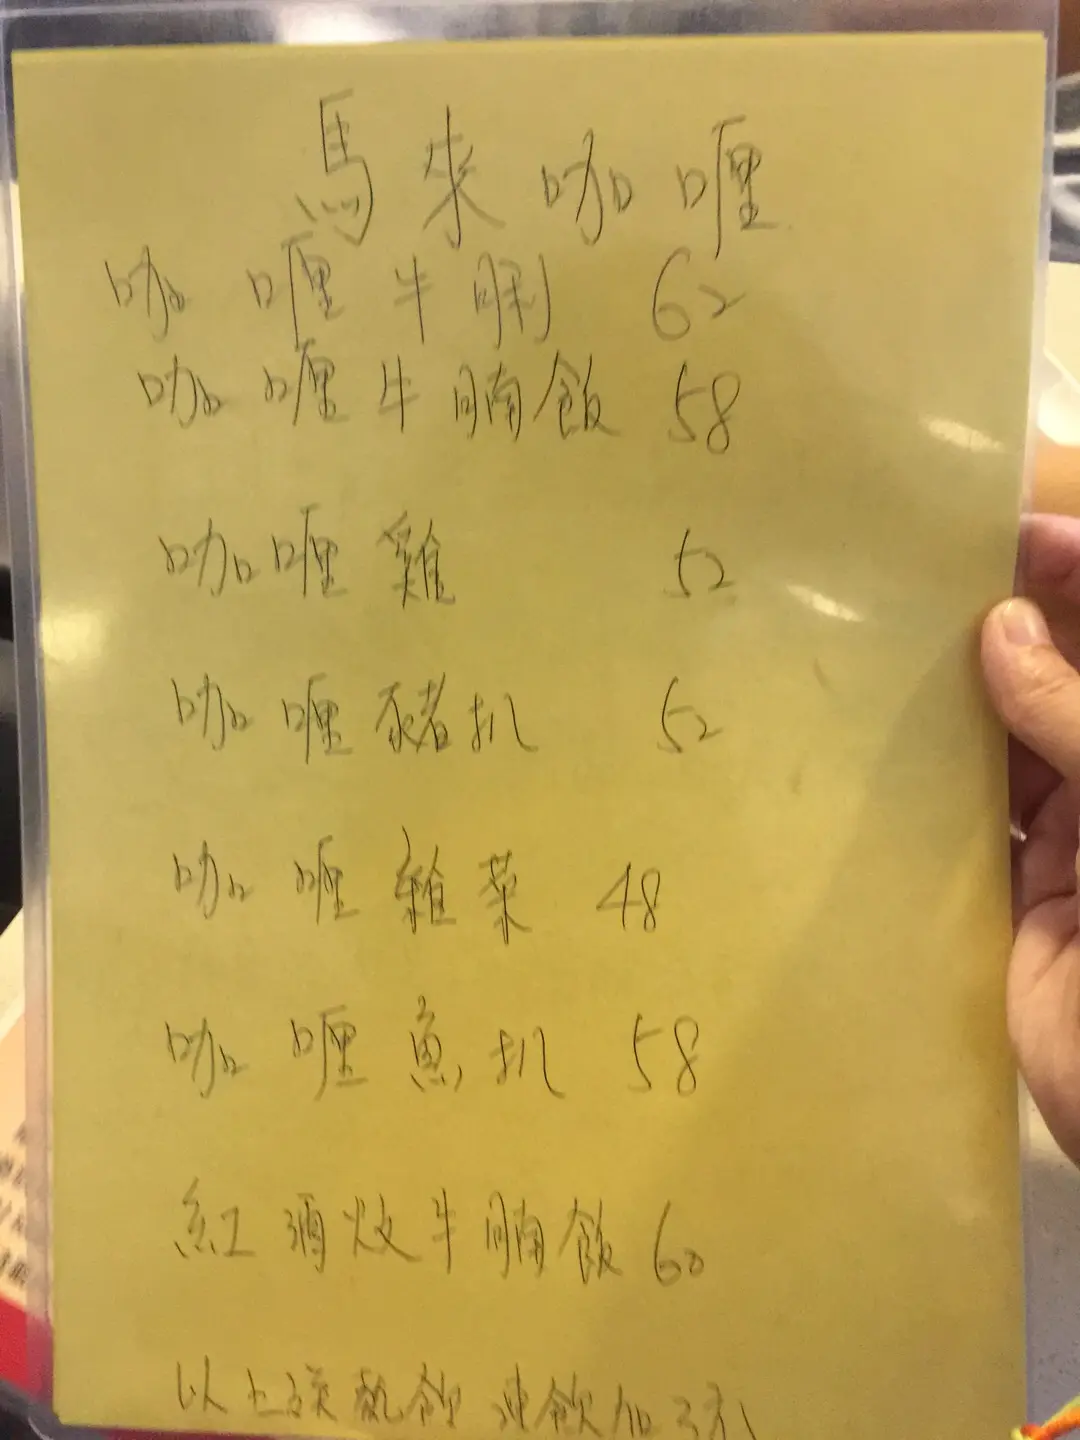 馬來咖喱
咖喱牛脷 62
咖喱牛腩飯 58
咖喱雞 52
咖喱豬扒 52
咖喱雜菜 48
咖喱魚扒 58
紅酒炆牛腩飯 60
以上跟熱飲 凍飲加3元